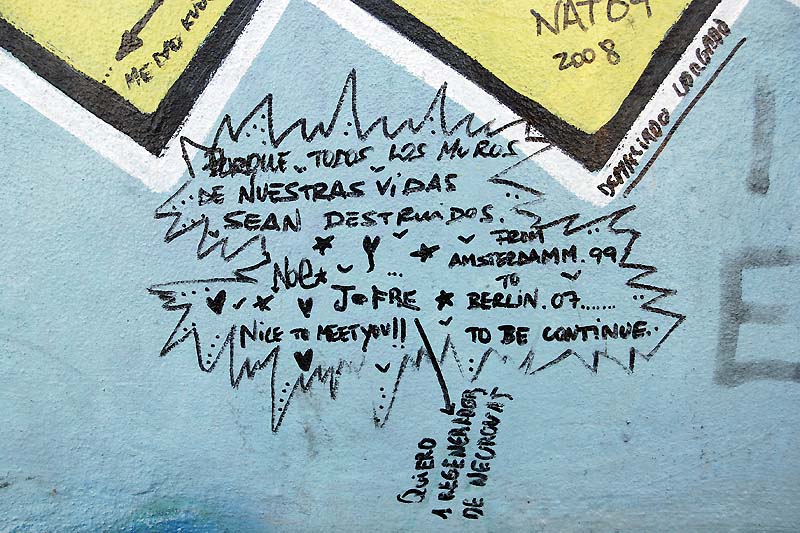 NATOY
2008
ME DAO
DEMACIADO LARGADO
PORQUE TODOS LOS MUROS
DE NUESTRAS VIDAS
SEAN DESTRUIDOS.
FROM
AMSTERDAMM.99
TO
BERLIN.07.......
TO BE CONTINUE..
NOE
JOFRE
NICE TO MEET YOU!!
QUIERO
1 REGENERADOR
DE NEURONAS
I
E